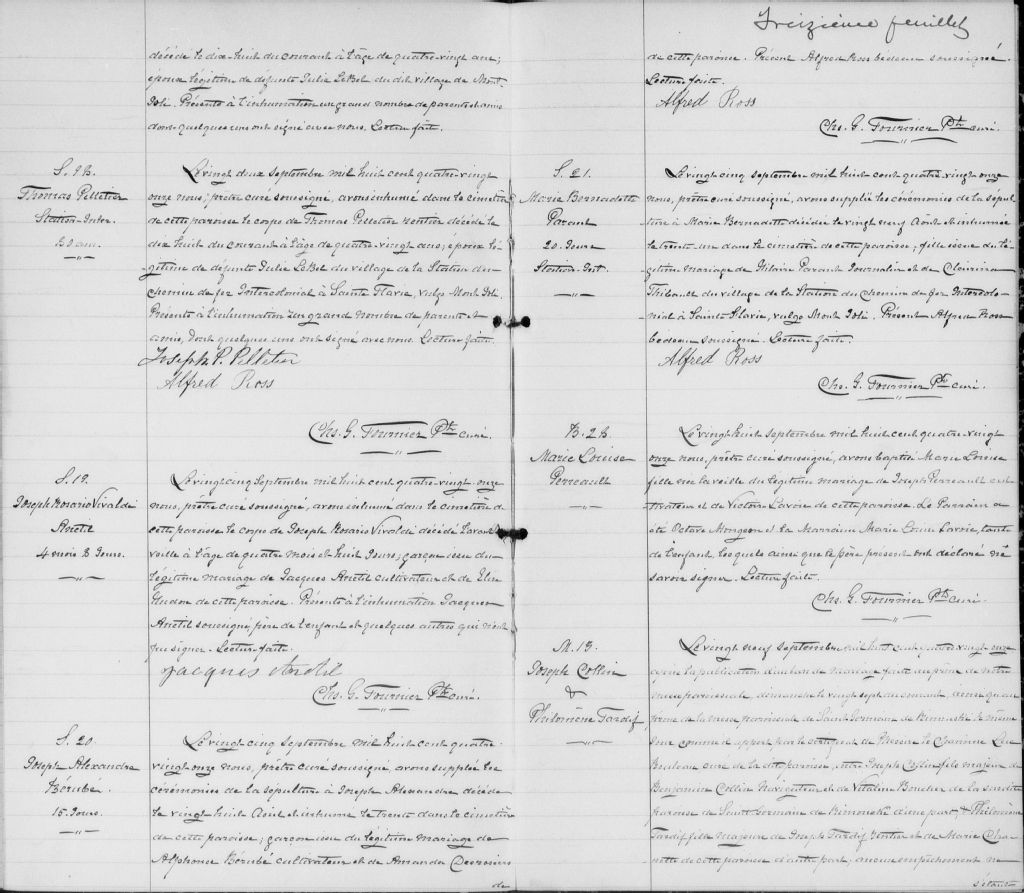 décédé le dix-huit du courant à l'âge de quatre-vingt ans;
époux légitime de défunte Julie LeBel du dit village de Mont
Joli. Présents à l'inhumation un grand nombre de parents et amis
dont quelques uns ont signé avec nous. Lecture faite.
S.
Thomas Pelletier
Station-Inter.
80 ans.
Le vingt deux septembre mil huit cent quatre-vingt
onze nous, prêtre curé soussigné, avons inhumé dans le cimetière
de cette paroisse le corps de Thomas Pelletier rentier décédé le
dix huit du courant à l'âge de quatre-vingt ans; époux lé-
gitime de défunte Julie LeBel du village de la Station du
chemin de fer Intercolonial à Sainte Flavie, vulgo Mont Joli.
Présents à l'inhumation un grand nombre de parents et
amis, dont quelques uns ont signé avec nous. Lecture faite.
Joseph P. Pelletier
Alfred Ross
Chs. G. Fournier Ptre curé.
S. 19.
Joseph Rosario Vivaldi
Anctil
4 mois 8 Jours.
Le vingt cinq Septembre mil huit cent quatre-vingt-onze
nous, prêtre curé soussigné, avons inhumé dans le cimetière de
cette paroisse le corps de Joseph Rosario Vivaldi décédé l'avant
veille à l'âge de quatre mois et huit Jours; garçon issu du
légitime mariage de Jacques Anctil cultivateur et de Elise
Hudon de cette paroisse. Présents à l'inhumation Jacques
Anctil soussigné, père de l'enfant et quelques autres qui n'ont
pu signer. Lecture faite.
Jacques Anctil
Chs. G. Fournier Ptre curé.
S. 20
Joseph Alexandre
Bérubé.
15 Jours.
Le vingt cinq septembre mil huit cent quatre-
vingt onze nous, prêtre curé soussigné avons suppléé les
cérémonies de la sépulture à Joseph Alexandre décédé
le vingt huit Août et inhumé le trente dans le cimetière
de cette paroisse; garçon issu du légitime mariage de
Alphonse Bérubé cultivateur et de Amanda Desrosiers
de
Treizième feuillet
de cette paroisse. Présent Alfred Ross bedeau soussigné.
Lecture faite.
Alfred Ross
Chs. G. Fournier Ptre curé.
S. 21.
Marie Bernadette
Parant
20 Jours
Station-Int.
Le vingt cinq septembre mil huit cent quatre-vingt onze
nous, prêtre curé soussigné, avons suppléé les cérémonies de la sépul-
ture à Marie Bernadette décédée le vingt neuf Août et inhumée
le trente un dans le cimetière de cette paroisse; fille issue du lé-
gitime mariage de Hilaire Parant Journalier et de
Thibault du village de la Station du chemin de fer Intercolo-
nial à Sainte Flavie, vulgo Mont Joli. Présent Alfred Ross
bedeau soussigné. Lecture faite.
Alfred Ross
Chs. G. Fournier Ptre curé.
B.
Marie Louise
Perreault
Le vingt huit septembre mil huit cent quatre-vingt
onze nous, prêtre curé soussigné, avons baptisé Marie Louise
fille née la veille du légitime mariage de Joseph Perreault cul-
tivateur et de Victoria Lavoie de cette paroisse. Le Parrain a
été Octave Mongeon et la Marraine Marie Louise Lavoie, tante
de l'enfant, lesquels ainsi que le père présent ont déclaré ne
savoir signer. Lecture faite.
Chs. G. Fournier Ptre curé.
M. 13.
Joseph Collin
&
Philomène Tardif
Le vingt neuf septembre mil huit cent quatre vingt onze
après la publication d'un ban de mariage faite au prône de notre
messe paroissiale dimanche le vingt sept du courant, ainsi qu'au
prône de la messe paroissiale de Saint Germain de Rimouski le même
Jour comme il appert par le certificat de Messire le Chanoine
curé de la dite paroisse, entre Joseph Collin fils majeur de
Benjamin Collin Navigateur et de Vitaline Boucher de la susdite
paroisse de Saint Germain de Rimouski d'une part; & Philomène
Tardif fille majeure de Joseph Tardif Rentier et de Marie
de cette paroisse d'autre part; aucun empêchement ne
s'étant